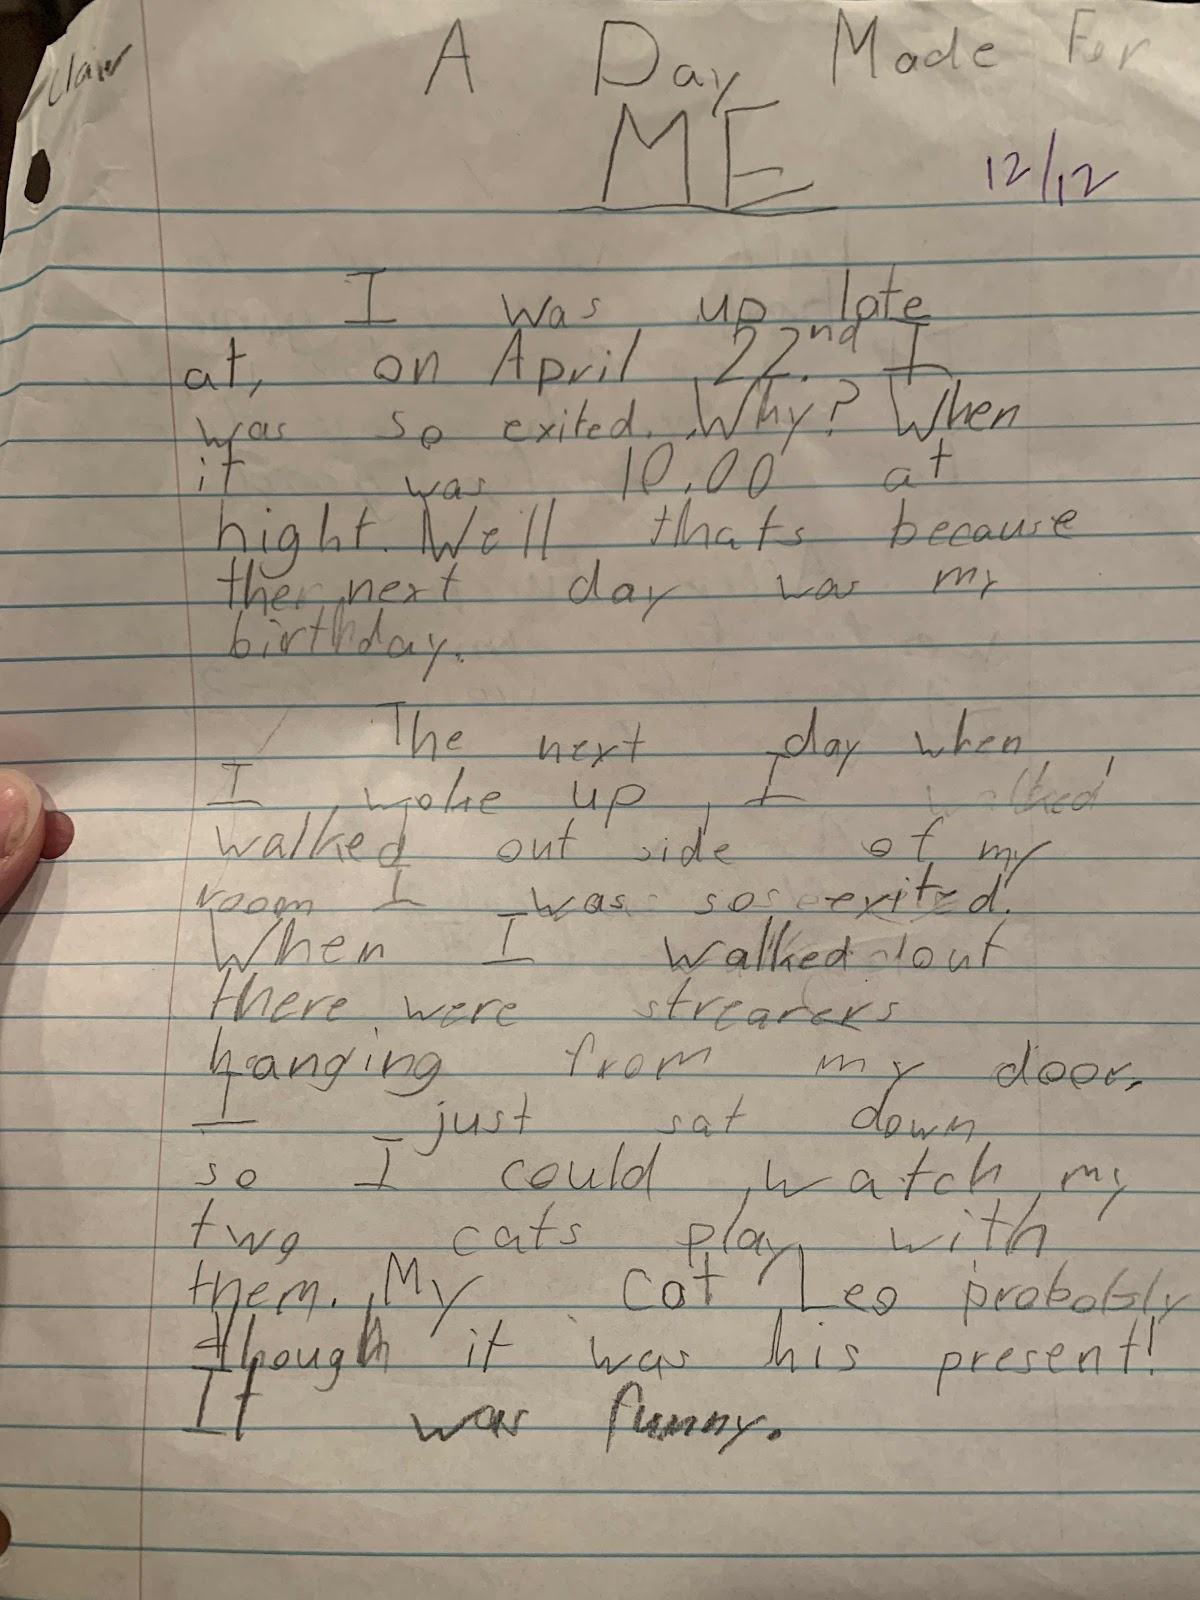 Clair
A Day Made For
ME
12/12
I was up late
at, on April 22.nd I
was so exited. Why? When
it was 10.00 at
hight. Well thats because
the next day was my
birthday.
The next day when
I woke up, I walked
walked out side of my
room I was so exited!
When I walked out
there were strearers
hanging from my door.
I just sat down
so I could watch my
two cats play with
them. My cat Leo probobly
though it was his present!
It was funny.